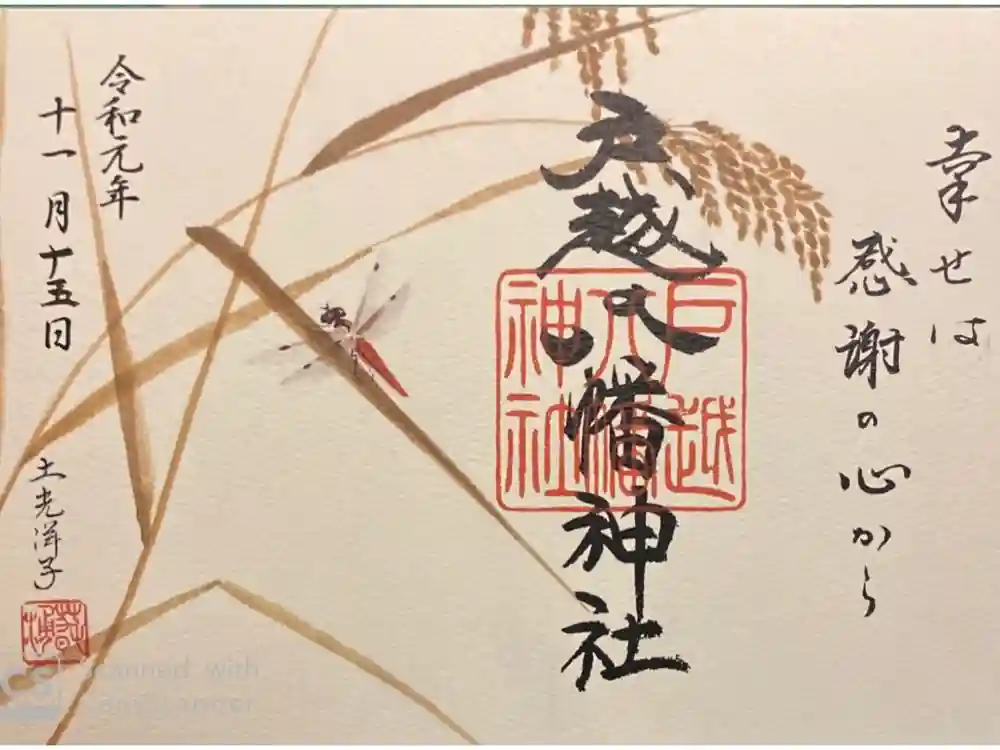 幸せは
感謝の心から
戸越八幡神社
戸越
八幡
神社
令和元年
十一月十五日
土光洋子
Scanned with
CamScanner